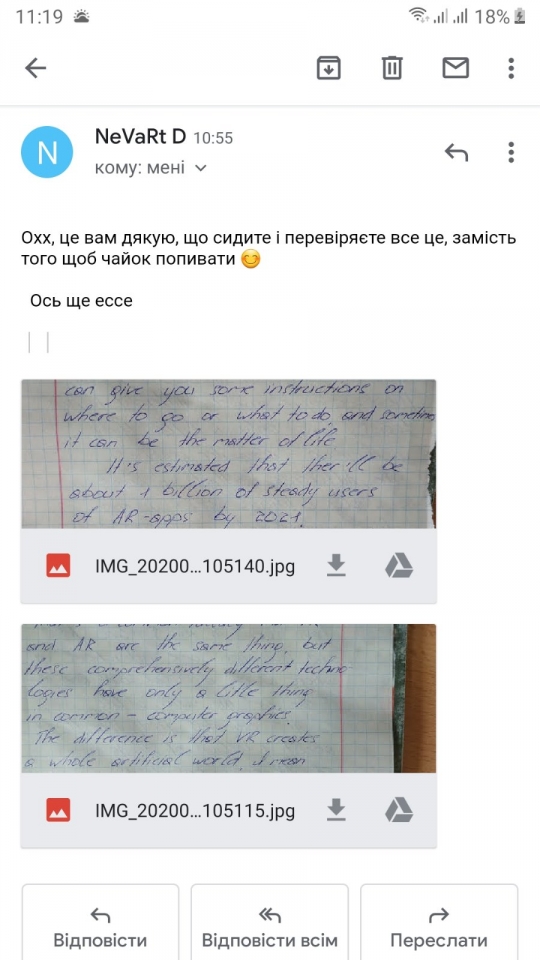 11:19 18%
NeVaRt D 10:55
кому: мені
N
Охх, це вам дякую, що сидите і перевіряєте все це, замість
того щоб чайок попивати
Ось ще ессе
can give you some instructions on
where to go or what to do, and sometime
it can be the matter of life
It's estimated that ther'll be
about 1 billion of steady users
of AR-apps by 2021.
IMG_20200...105140.jpg
and AR are the same thing, but
these comprehensively different techno-
logies have only a little thing
in common – computer graphics.
The difference is that VR creates
a whole artificial world. I mean
IMG_20200...105115.jpg
Відповісти
Відповісти всім
Переслати